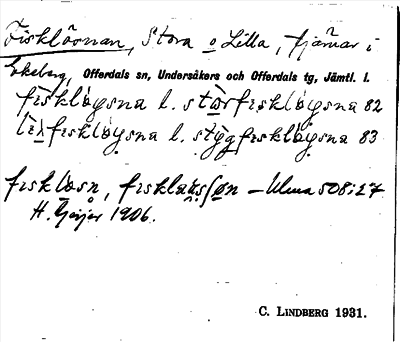 Fisklösnan, Stora o Lilla, tjärnar i
Ekeberg, Offerdals sn, Undersåkers och Offerdals tg, Jämtl. l.
fɪskløysna l. størfɪskløysna 82
lɪlfɪskløysna l. styggfɪskløysna 83
fɪskløsn, – Ulma 508:27
H. Geijer 1906.
C. LINDBERG 1931.